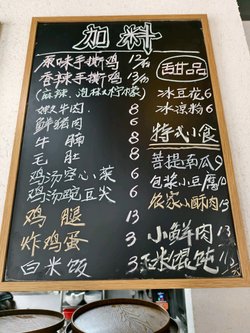 加料
原味手撕鸡 13/份
香辣手撕鸡 13/份
(麻辣、泡椒&柠檬)
牛肉 8
鲜猪肉 6
牛腩 8
毛肚 8
鸡汤空心菜 6
鸡汤豌豆尖 6
鸡腿 13
炸鸡蛋 3
白米饭 3
甜品
冰豆花 6
冰凉粉 6
特式小食
菩提南瓜 9
包浆小豆腐 10
农家小酥肉 13
小鲜肉
玉米馄饨